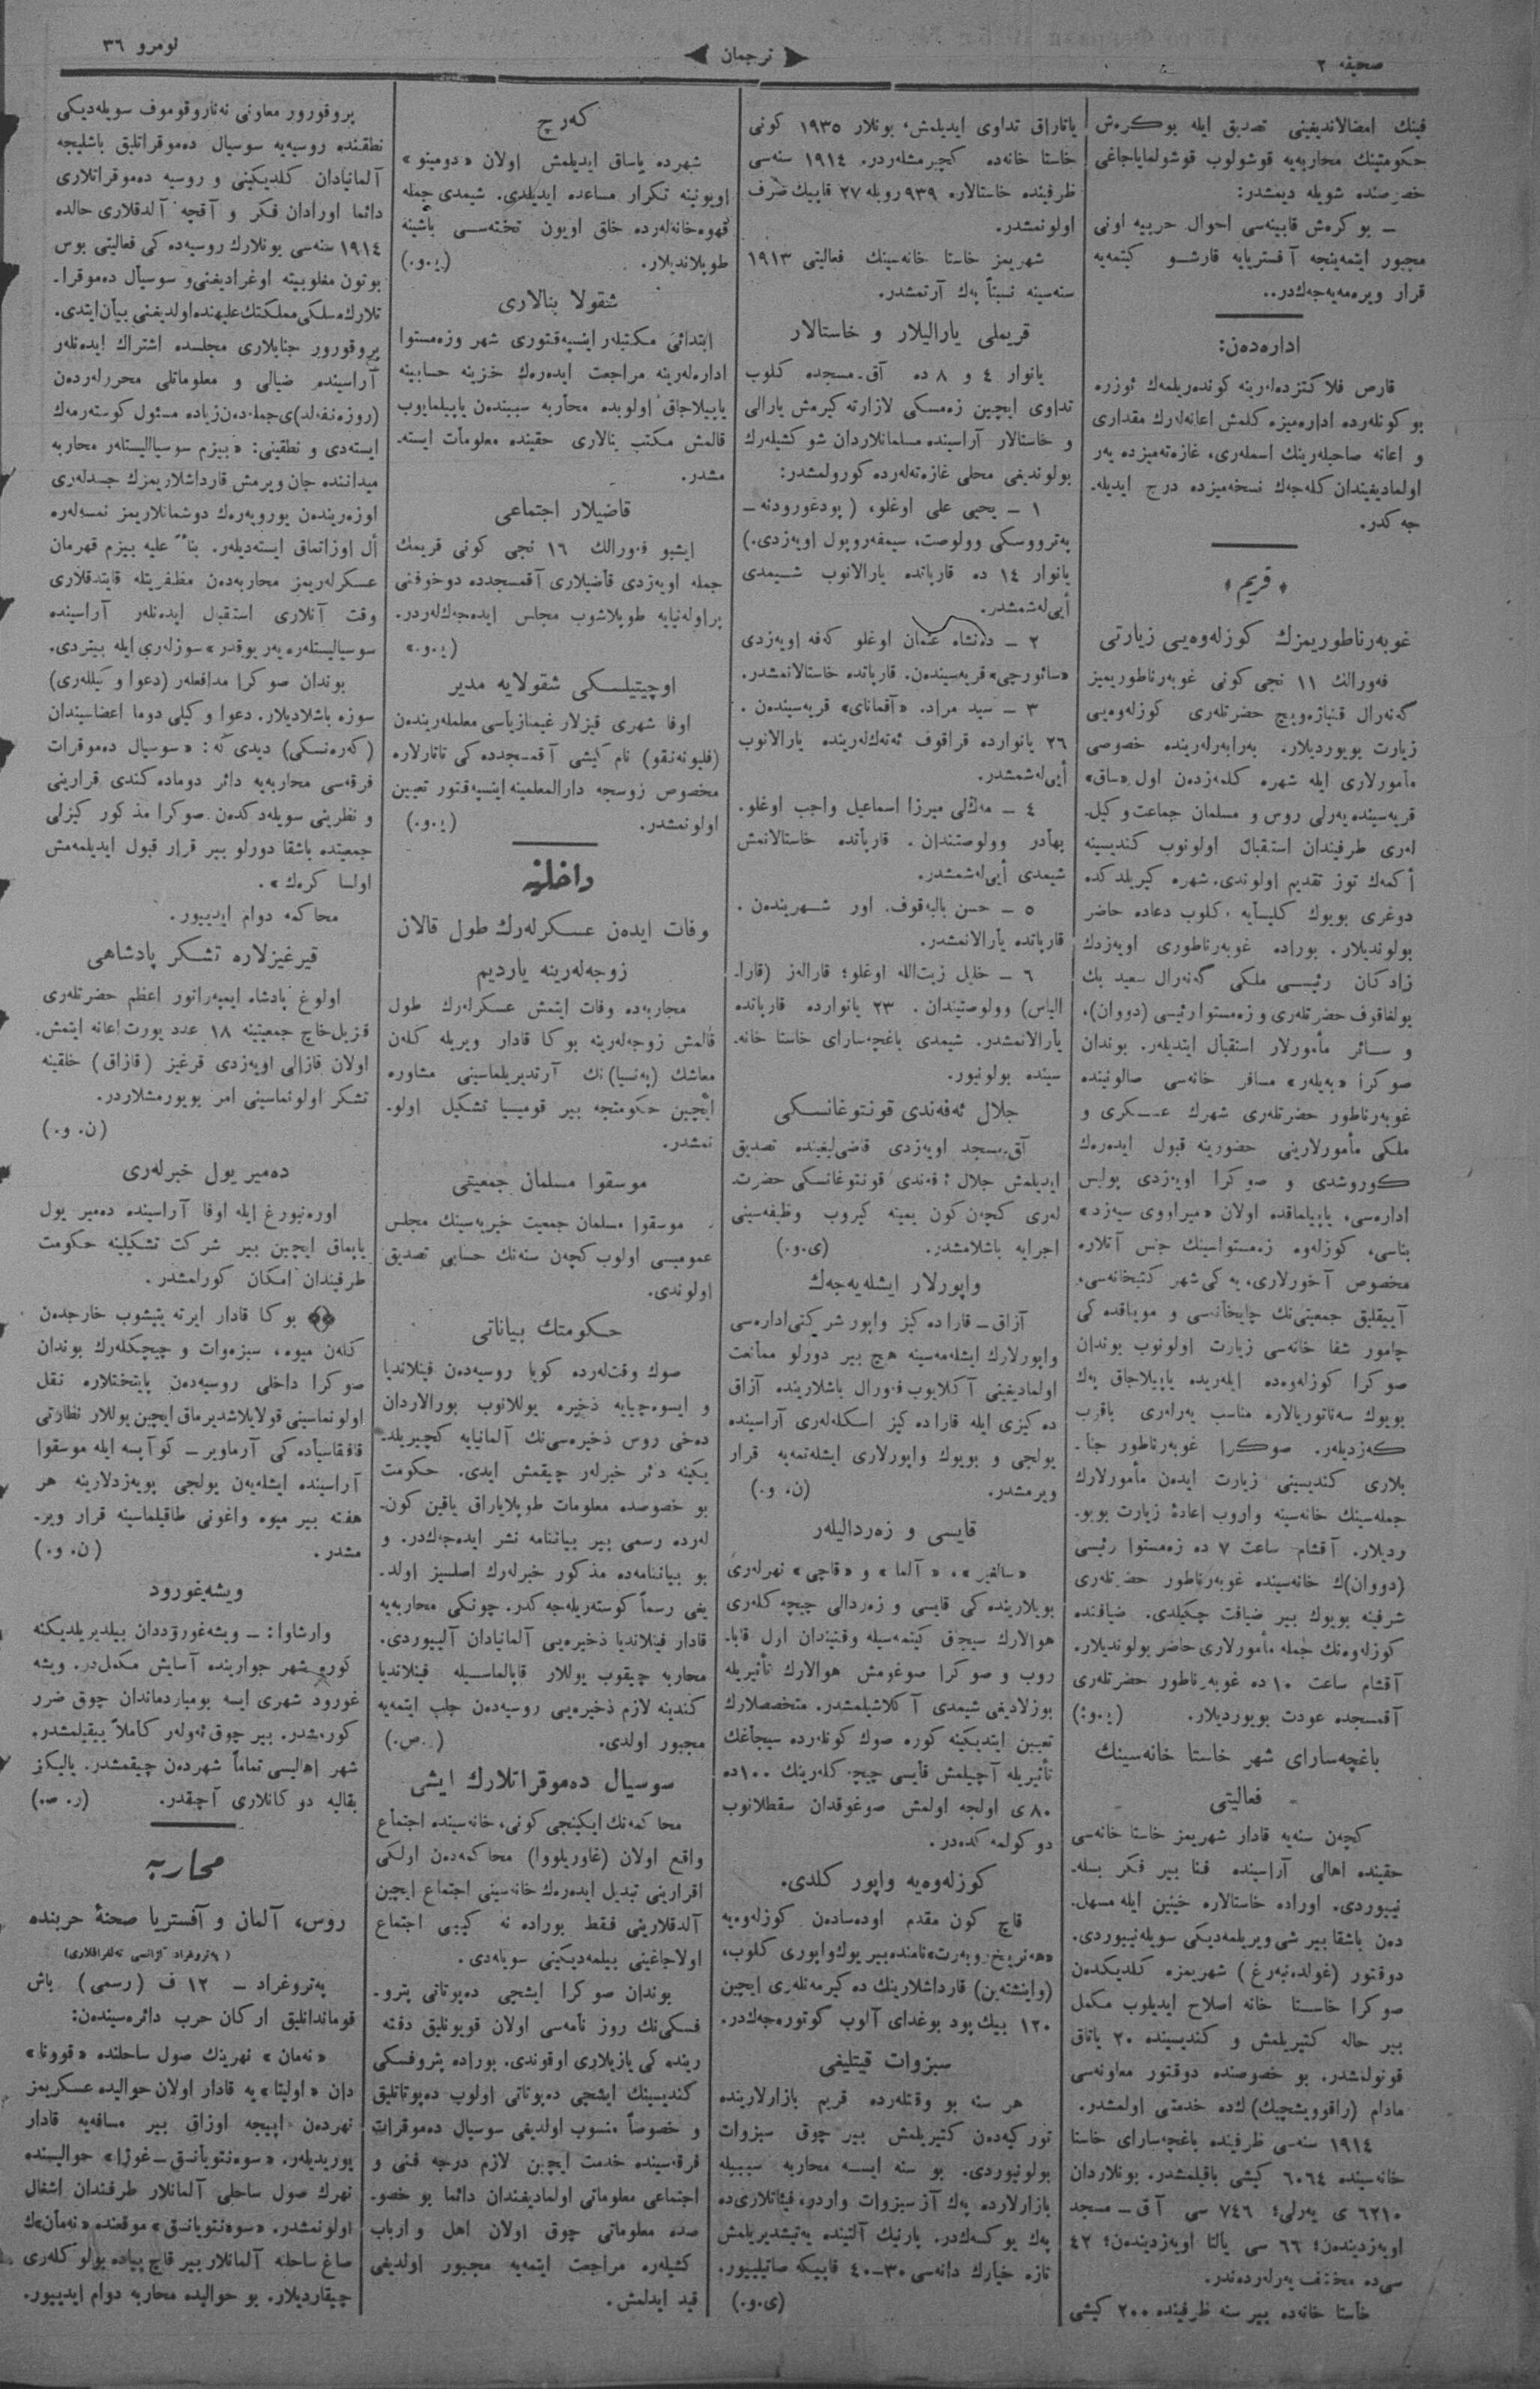 صحیفه ٢
ترجمان
نومرو ٣٦
فینك امضالاندیغینی تصدیق ایله بوكره‌ش
حكومتینك محاربه‌یه قوشولوب قوشولمایاجاغی
خصوصنده شویله دیمشدر:
– بوكره‌ش قابینه‌سی احوال حربیه اونی
مجبور ایتمه‌ینجه آفستریایه قارشو كیتمه‌یه
قرار ویره‌مه‌یه‌جه‌كدر..
اداره‌ده‌ن:
قارص فلاكتزده‌لرینه كونده‌ریلمه‌ك ئوزره
بو كونله‌رده اداره‌میزه كلمش اعانه‌له‌رك مقداری
و اعانه صاحبله‌رینك اسمله‌ری، غازه‌ته‌میزده یه‌ر
اولمادیفیندان كله‌جه‌ك نسخه‌میزده درج ایدیله-
جه كدر.
قریم
غوبه‌رناطوریمزك كوزله‌وه‌یی زیارتی
فه‌ورالك ١١ نجی كونی غوبه‌رناطوریمیز
گه‌نه‌رال قنیازه‌ویچ حضرتله‌ری كوزله‌وه‌یی
زیارت بویوردیلار. به‌رابه‌رله‌رینده خصوصی
مأمورلاری ایله شهره كلمه‌زدن اول «ساق»
قریه‌سینده یه‌رلی روس و مسلمان جماعت وكیل-
له‌ری طرفیندان استقبال اولونوب كندیسینه
أكمه‌ك توز تقدیم اولوندی. شهره كیریلدكده
دوغری بویوك كلیسأیه كلوب دعاده حاضر
بولوندیلار. بوراده غوبه‌رناطوری اویه‌زدك
زادكان رئیسی ملكی گه‌نه‌رال سعید بك
بولغاقوف حضرتله‌ری و زه‌مستوا رئیسی (دووان)،
و سائر مأمورلار استقبال ایتدیله‌ر. بوندان
صوكرا «به‌یله‌ر» مسافر خانه‌سی صالونینده
غوبه‌رناطور حضرتله‌ری شهرك عسكری و
ملكی مأمورلارینی حضورینه قبول ایده‌ره‌ك
كوروشدی و صوكرا اویه‌زدی پولیس
اداره‌سی، یاپیلماقده اولان «میراووی سیه‌زد»
بناسی، كوزله‌وه زه‌مستواسینك جنس آتلاره
مخصوص آخورلاری، یه‌كی شهر كتبخانه‌سی،
آییقلیق جمعیتی‌نك چایخانه‌سی و مویناقده كی
چامور شفا خانه‌سی زیارت اولونوب بوندان
صوكرا كوزله‌وه‌ده ایله‌ریده یاپیلاجاق یه‌ك
بویوك سه‌ناتوریالاره مناسب یه‌رله‌ری باقرب
كه‌زدیله‌ر. صوكرا غوبه‌رناطور جنا-
بلاری كندیسینی زیارت ایده‌ن مأمورلارك
جمله‌سینك خانه‌سینه واروب اعادۀ زیارت بویو-
ردیلار. آقشام ساعت ٧ ده زه‌مستوا رئیسی
(دووان)ك خانه‌سینده غوبه‌رناطور حضرتله‌ری
شرفینه بویوك بیر ضیافت چكیلدی. ضیافتده
كوزله‌وه‌نك جمله مأمورلاری حاضر بولوندیلار.
آقشام ساعت ١٠ ده غوبه‌رناطور حضرتله‌ری
آقمسجده عودت بویوردیلار. (ی.و.)
باغچه‌سارای شهر خاستا خانه‌سینك
فعالیتی
كچه‌ن سنه‌یه قادار شهریمز خاستا خانه‌سی
حقینده اهالی آراسینده فنا بیر فكر بسله-
نییوردی. اوراده خاستالاره خینین ایله مسهل-
ده‌ن باشقا بیر شی ویریلمه‌دیكی سویله‌نییوردی.
دوقتور (غولده‌نبه‌رغ) شهریمزه كلدیكده‌ن
صوكرا خاستا خانه اصلاح ایدیلوب مكمل
بیر حاله كتیریلمش و كندیسینده ٢٠ یاتاق
قونولمشدر. بو خصوصنده دوقتور معاونه‌سی
مادام (راقوویشچیك)ك‌ده خدمتی اولمشدر.
١٩١٤ سنه‌سی ظرفینده باغچه‌سارای خاستا
خانه‌سینده ٦٠٦٤ كیشی باقیلمشدر. بونلاردان
٦٢١٠ ی یه‌رلی؛ ٧٤٦ سی آق – مسجد
اویه‌زدینده‌ن؛ ٦٦ سی یالتا اویه‌زدینده‌ن؛ ٤٢
سی‌ده مختلف یه‌رله‌رده‌ندر.
خأستا خانه‌ده بیر سنه ظرفینده ٢٠٠ كیشی
یاتاراق تداوی ایدیلمش، بونلار ١٩٣٥ كونی
خاستا خانه‌ده كچیرمشله‌ردر. ١٩١٤ سنه‌سی
ظرفینده خاستالاره ٩٣٩ روبله ٢٧ قاپیك صرف
اولونمشدر.
شهریمز خاستا خانه‌سینك فعالیتی ١٩١٣
سنه‌سینه نسبتاً یه‌ك آرتمشدر.
قریملی یارالیلار و خاستالار
یانوار ٤ و ٨ ده آق-مسجده كلوب
تداوی ایچین زه‌مسكی لازارته كیرمش یارالی
و خاستالار آراسینده مسلمانلاردان شو كشیله‌رك
بولوندیغی محلی غازه‌ته‌له‌رده كورولمشدر:
١ – یحیی علی اوغلو، (پودغورودنه –
په‌ترووسكی وولوصت، سیمفه‌روپول اویه‌زدی.)
یانوار ١٤ ده قارپاتده یارالانوب شیمدی
أیی‌له‌شمشدر.
٢ – ده‌نشاه عثمان اوغلو كه‌فه اویه‌زدی
«سائورچی» قریه‌سینده‌ن. قارپاتده خاستالانمشدر.
٣ – سید مراد. «آقمانای» قریه‌سینده‌ن.
٢٦ یانوارده قراقوف ئه‌ته‌ك‌له‌رینده یارالانوب
أیی‌له‌شمشدر.
٤ – مه‌ڭلی میرزا اسماعیل واجب اوغلو.
بهأدر وولوصتندان. قارپأتده خاستالانمش
شیمدی أیی‌له‌شمشدر.
٥ – حسن بالبه‌قوف. اور شهرینده‌ن.
قارپاتده یأرالانمشدر.
٦ – خلیل زیت‌الله اوغلو؛ قارا‌له‌ز (قارا-
الیاس) وولوصتیندان. ٢٣ یانوارده قارپاتده
یأرالانمشدر. شیمدی باغچه‌سارای خاستا خانه-
سینده بولونیور.
جلال ئه‌فه‌ندی قونتوغانسكی
آق‌مسجد اویه‌زدی قاضی‌لیغینده تصدیق
ایدیلمش جلال ئه‌فه‌ندی قونتوغانسكی حضرت-
له‌ری كچه‌ن كون یمینه كیروب وظیفه‌سینی
اجرایه باشلامشدر. (ی.و.)
واپورلار ایشله‌یه‌جه‌ك
آزاق – قارا ده‌كیز واپور شركتی اداره‌سی
واپورلارك ایشله‌مه‌سینه هیچ بیر دورلو ممأنعت
اولمادیغینی آكلایوب فه‌ورال باشلارینده آزاق
ده كیزی ایله قارا ده كیز اسكله‌له‌ری آراسینده
یولجی و بویوك واپورلاری ایشله‌تمه‌یه قرار
ویرمشدر. (ن. و.)
قایسی و زه‌ردالیله‌ر
«سالغیر»، «آلما» و «قاچی» نهرله‌ری
بویلارینده كی قایسی و زه‌ردالی چیچه كله‌ری
هوالارك سیجق كیتمه‌سیله وقتیندان اول قابا-
روب و صوكرا صوغومش هوالارك تأثیریله
بوزلادیغی شیمدی آكلاشیلمشدر. متخصصلارك
تعیین ایتدیكینه كوره صوك كونله‌رده سیجاغك
تأثیریله آچیلمش قأیسی چیچه‌كله‌رینك ١٠٠ ده
٨٠ ی اولجه اولمش صوغوقدان سقطلانوب
دوكولمه كده‌در.
كوزله‌وه‌یه واپور كلدی.
قاچ كون مقدم اوده‌ساده‌ن كوزله‌وه‌یه
«هه‌نریخ-روبه‌رت» نامنده بیر یوك واپوری كلوب،
(واینشته‌ین) قارداشلارینك ده كیرمه‌نله‌ری ایچین
١٢٠ بیك پود بوغدای آلوب كوتوره‌جه‌كدر.
سبزوات قیتلیغی
هر سنه بو وقتله‌رده قریم بازارلارینده
تورکیه‌دن كتیریلمش بیر چوق سبزوات
بولونیوردی. بو سنه ایسه محاربه سببیله
بازارلارده یه‌ك آز سبزوات واردر. فیئاتلاری‌ده
یه‌ك یوكسه‌كدر. پارنیك آلتینده یه‌تیشدیریلمش
تازه خیارك دانه‌سی ٣٠–٤٠ قاپیكه صاتیلییور.
(ی.و.)
كه‌رچ
شهرده یاساق ایدیلمش اولان «دومینو»
اویونینه تكرار مساعده ایدیلدی. شیمدی جمله
قهوه‌خانه‌له‌رده خلق اویون تخته‌سی باشینه
طوپلاندیلار. (ی.و.)
شقولا بنالاری
ابتدائی مكتبله‌ر اینسپه‌قتوری شهر وزه‌مستوا
اداره‌له‌رینه مراجعت ایده‌ره‌ك خزینه حسابینه
یاپیلاجاق اولوبده محأربه سببندن یاپیلمایوب
قالمش مكتب بنالاری حقینده معلومأت ایسته-
مشدر.
قاضیلار اجتماعی
ایشبو فه‌ورالك ١٦ نجی كونی قریمك
جمله اویه‌زدی قأضیلاری آقمسجدده دوخوفنی
پراوله‌نیایه طوپلاشوب مجلس ایده‌جه‌كله‌ردر.
(ی.و.)
اوچیتیلسكی شقولایه مدیر
اوفا شهری قیزلار غیمنازیأسی معلمله‌رینده‌ن
(فلیونه‌نقو) نام كیشی آقمسجدده كی تاتارلاره
مخصوص روسجه دارالمعلمینه اینسپه‌قتور تعیین
اولونمشدر. (ی.و.)
داخلیه
وفات ایده‌ن عسكرله‌رك طول قالان
زوجه‌له‌رینه یاردیم
محاربه‌ده وفات ایتمش عسكرله‌رك طول
قألمش زوجه‌له‌رینه بو كا قادار ویریله كله‌ن
معاشك (په‌نسیا) نك آرتدیریلماسینی مشاوره
ایچین حكومتجه بیر قومیسیا تشكیل اولو-
نمشدر.
موسقوا مسلمان جمعیتی
موسقوا مسلمان جمعیت خیریه‌سینك مجلس
عمومیسی اولوب كچه‌ن سنه‌نك حسابی تصدیق
اولوندی.
حكومتك بیاناتی
صوك وقت‌له‌رده كویا روسیه‌ده‌ن فینلاندیا
و ایسوه‌چیایه ذخیره یوللانوب بورالاردان
ده‌خی روس ذخیره‌سی‌نك آلمانیایه كچیریلد-
یكینه دائر خبرله‌ر چیقمش ایدی. حكومت
بو خصوصده معلومات طوپلایاراق یاقین كون-
له‌رده رسمی بیر بیاننامه نشر ایده‌جه‌كدر. و
بو بیاننامه‌ده مذكور خبرله‌رك اصلسیز اولد-
یغی رسماً كوسته‌ریله‌جه كدر. چونكی محاربه‌یه
قادار فینلاندیا ذخیره‌یی آلمانیادان آلییوردی.
محاربه چیقوب یوللار قاپالماسیله فینلاندیا
كندینه لازم ذخیره‌یی روسیه‌ده‌ن جلب ایتمه‌یه
مجبور اولدی. (ر.ص.)
سوسیال ده‌موقراتلارك ایشی
محاكمه‌نك ایكینجی كونی، خانه‌سینده اجتمأع
واقع اولان (غاوریلووا) محاكمه‌ده‌ن اولكی
اقرارینی تبدیل ایده‌ره‌ك خانه‌سینی اجتماع ایچین
آلدقلارینی فقط بوراده نه كیبی اجتماع
اولاجاغینی بیلمه‌دیكینی سویله‌دی.
بوندان صوكرا ایشجی ده‌پوتاتی پترو-
فسكی‌نك روز نأمه‌سی اولان قویونلیق دفته-
رینده كی یازیلاری اوقوندی. بوراده پتروفسكی
كندیسینك ایشجی ده‌پوتاتی اولوب ده‌پوتاتلیق
و خصوصاً منسوب اولدیغی سوسیال ده‌موقرات
فرقه‌سینده خدمت ایچین لازم درجه فنی و
اجتماعی معلوماتی اولمادیغندان دائما بو خصو-
صده معلوماتی چوق اولان اهل و ارباب
كشیله‌ره مراجعت ایتمه‌یه مجبور اولدیغی
قید ایدلمش.
پروقورور معاونی نه‌ناروقوموف سویله‌دیكی
نطقنده روسیه‌یه سوسیال ده‌موقراتلیق باشلیجه
آلمانیادان كلدیكینی و روسیه ده‌موقراتلاری
دائما اورادان فكر و آقچه آلدقلاری حالده
١٩١٤ سنه‌سی بونلارك روسیه‌ده كی فعالیتی بوس
بوتون مغلوبیته اوغرادیغنی و سوسیأل ده‌موقرا-
تلارك مسلكی مملكتك علیهنده اولدیغنی بیأن ایتدی.
پروقورور جنابلاری مجلسده اشتراك ایده‌نله‌ر
آراسینده ضیالی و معلوماتلی محررله‌رده‌ن
(روزه‌نفه‌لد)ی جمله‌ده‌ن زیاده مسئول كوسته‌رمه‌ك
ایسته‌دی و نطقینی: «بیزم سوسیالیستله‌ر محاربه
میداننده جان ویرمش قارداشلاریمزك جسدله‌ری
اوزه‌رینده‌ن یورویه‌ره‌ك دوشمانلاریمز نمسه‌له‌ره
أل اوزاتماق ایسته‌دیله‌ر. بناءً علیه بیزم قهرمان
عسكرله‌ریمز محاربه‌ده‌ن مظفریتله قایتدقلاری
وقت آنلاری استقبال ایده‌نله‌ر آراسینده
سوسیالیستله‌ره یه‌ر یوقدر» سوزله‌ری ایله بیتردی.
بوندان صوكرا مدافعله‌ر (دعوا وكیلله‌ری)
سوزه باشلادیلار. دعوا وكیلی دوما اعضاسیندان
(كه‌ره‌نسكی) دیدی كه: «سوسیال ده‌موقرات
فرقه‌سی محاربه‌یه دائر دوماده كندی قرارینی
و نظرینی سویله‌دكده‌ن صوكرا مذكور كیزلی
جمعیتده باشقا دورلو بیر قرار قبول ایدیلمه‌مش
اولسا كره‌ك».
محاكمه دوام ایدییور.
قیرغیزلاره تشكر پادشاهی
اولوغ پادشاه ایمپه‌راتور اعظم حضرتله‌ری
قزیل‌خاچ جمعیتینه ١٨ عدد یورت اعانه ایتمش
اولان قازالی اویه‌زدی قرغیز (قازاق) خلقینه
تشكر اولونماسینی امر بویورمشلاردر.
(ن. و.)
ده‌میر یول خبرله‌ری
اوره‌نبورغ ایله اوفا آراسینده ده‌میر یول
یاپماق ایچین بیر شركت تشكیلینه حكومت
طرفیندان امكان كورلمشدر.
بو كا قادار ایرته یتیشوب خارجده‌ن
كله‌ن میوه، سبزه‌وات و چیچكله‌رك بوندان
صوكرا داخلی روسیه‌ده‌ن پایتختلاره نقل
اولونماسینی قولایلاشدیرماق ایچین یوللار نظارتی
قافقاسیأده كی آرماویر – توآپسه ایله موسقوا
آراسینده ایشله‌یه‌ن یولجی پویه‌زدلارینه هر
هفته بیر میوه واغونی طاقیلماسینه قرار ویر-
مشدر. (ن. و.)
ویشه‌غورود
وارشاوا: – ویشه‌غورۆددان بیلدیریلدیكنه
كوره شهر جوارینده آسایش مكمل‌در. ویشه
غورود شهری ایسه بومباردماندان چوق ضرر
كورمشدر. بیر چوق ئه‌وله‌ر كاملاً ییقیلمشدر.
شهر اهالیسی تماماً شهردن چیقمشدر. یالیكز
بقالیه دوكانلاری آچقدر. (ر. ص.)
محاربه
روس، آلمان و آفستریا صحنۀ حربنده
(په‌تروغراد آژانسی ته‌لغرافلاری)
په‌تروغراد – ١٢ ف (رسمی) باش
قوماندانلیق اركان حرب دائره‌سیندن:
«نه‌مان» نهرینك صول ساحلنده «قوونا»
دان «اولیتا»یه قادار اولان حوالیده عسكریمز
نهرده‌ن اپیجه اوزاق بیر مسافه‌یه قادار
یوریدیله‌ر. «سوه‌نتویأنسق – غوژا» حوالیسنده
نهرك صول ساحلی آلمانلار طرفندان اشغال
اولونمشدر. «سوه‌نتویانسق» موقعنده «نه‌مأن»ك
صاغ ساحله آلمانلار بیر قاچ پیاده بولوكله‌ری
چیقاردیلار. بو حوالیده محاربه دوام ایدییور.